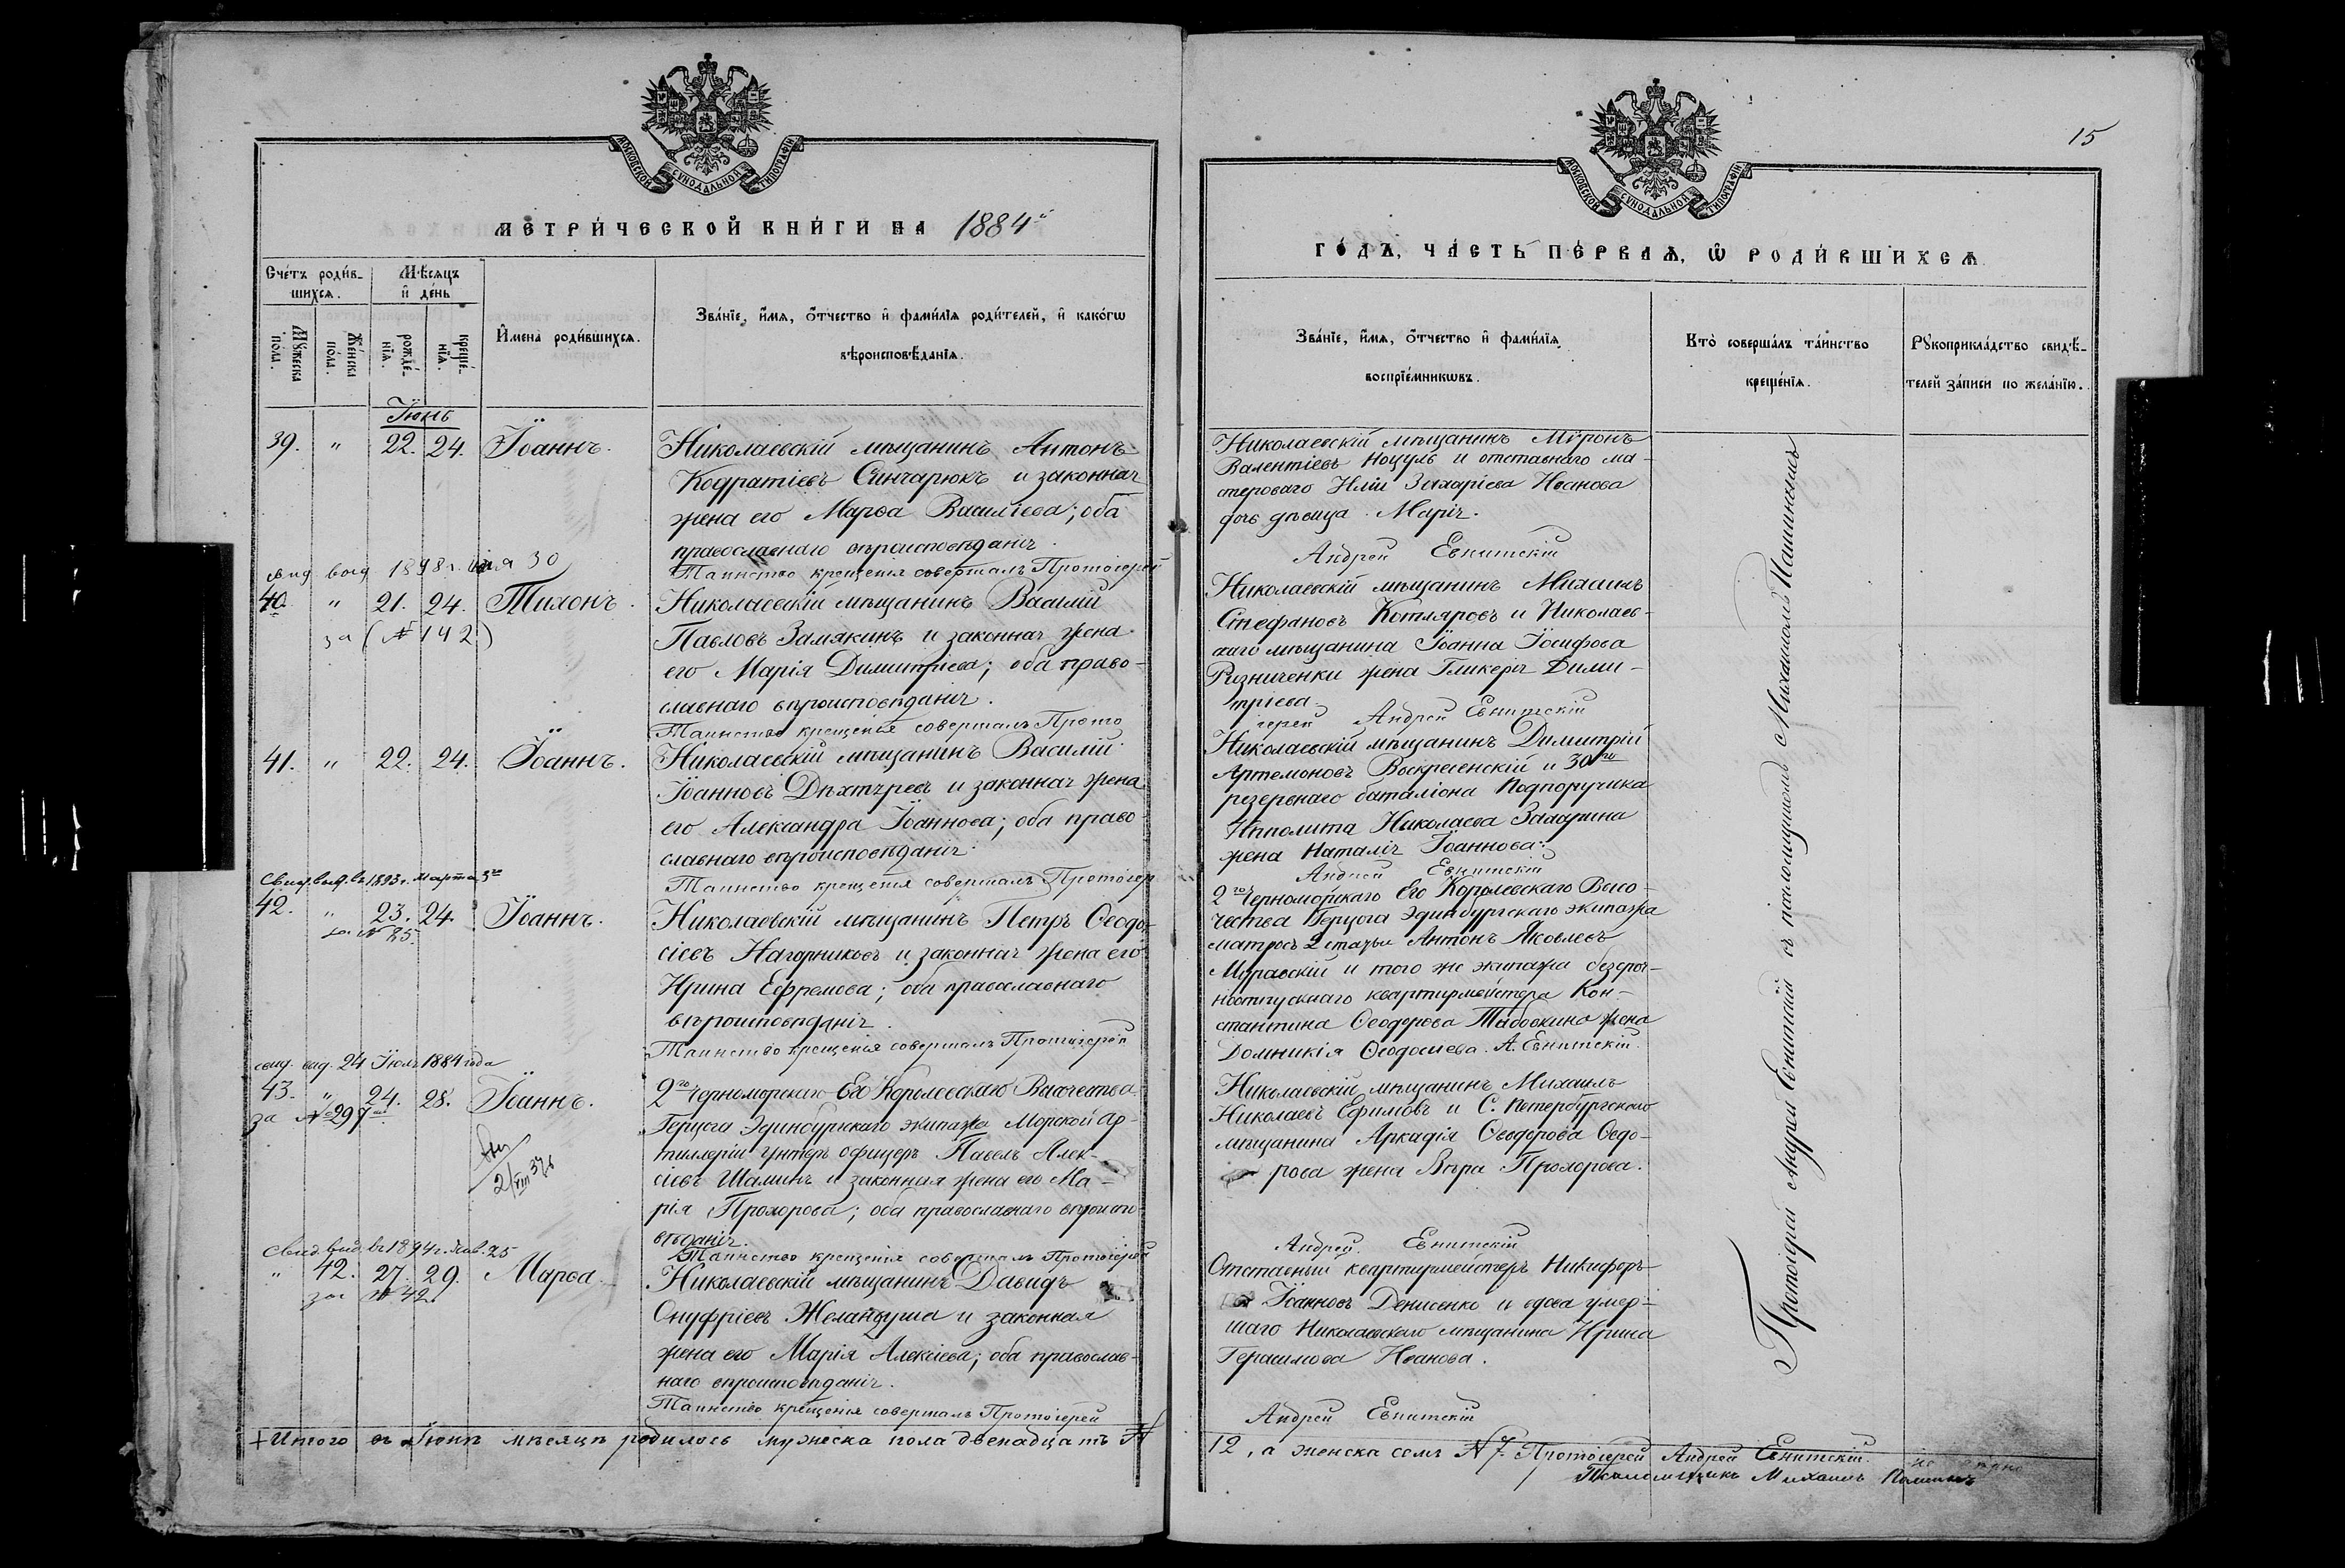 МОСКОВСКОЙ СѴНОДАЛЬНОЙ ТИПОГРАФІИ
МЕТРИ́ЧЕСКОЙ КНИ́ГИ НА 1884й
Сче́тъ роди́в-
шихся.
Мѣ́сяцъ
и҆ де́нь
Мꙋ́жеска
по́ла.
Же́нска
по́ла.
рожде́-
нїѧ.
креще́-
нїѧ.
И҆мена̀ роди́вшихсѧ.
Зва́нїе, и҆́мѧ, ѻ҆́тчество и҆ фами́лїѧ роди́телей, и҆ како́гѡ
вѣроисповѣ́данїѧ.
Іюнь
39. " 22. 24. Іоаннъ.
Николаевскій мѣщанинъ Антонъ
Кодратіевъ Синчарюкъ и законная
жена его Марѳа Василіева; оба
православнаго вѣроисповѣданія.
Таинство крещенія совершалъ Протоіерей
свид выд 1898 г. мая 30
40. " 21. 24. Тихонъ.
за (№ 142)
Николаевскій мѣщанинъ Василій
Павловъ Замякинъ и законная жена
его Марія Димитріева; оба право-
славнаго вѣроисповѣданія.
Таинство крещенія совершалъ Прото
41. " 22. 24. Іоаннъ.
Николаевскій мѣщанинъ Василій
Іоанновъ Дѣхтяревъ и законная жена
его Александра Іоаннова; оба право-
славнаго вѣроисповѣданія.
Таинство крещенія совершалъ Протоіер
Свид. выд. въ 1893 г. марта 3го
42. " 23. 24. Іоаннъ.
за № 25.
Николаевскій мѣщанинъ Петръ Ѳеодо-
сіевъ Нагорниковъ и законная жена его
Ирина Ефремова; оба православнаго
вѣроисповѣданія.
Таинство крещенія совершалъ Протоіерей
свид. выд. 24 Іюля 1884 года
43. " 24. 28. Іоаннъ.
за № 297
2го Черноморскаго Его Королевскаго Высочества
Герцога Эдинбургскаго экипажа Морской Ар-
тиллеріи унтеръ офицеръ Павелъ Алек-
сіевъ Шаминъ и законная жена его Ма-
рія Прохорова; оба православнаго вѣроиспо-
вѣданія.
Таинство крещенія совершалъ Протоіерей
2/VIII 37
Свид. выд. въ 1894 г. янв. 25
" 42. 27. 29. Марѳа.
за № 42.
Николаевскій мѣщанинъ Давидъ
Онуфріевъ Желандуша и законная
жена его Марія Алексіева; оба православ-
наго вѣроисповѣданія.
Таинство крещенія совершалъ Протоіерей
Итого въ Іюнѣ мѣсяцѣ родилось мужеска пола двенадцать №
15
МОСКОВСКОЙ СѴНОДАЛЬНОЙ ТИПОГРАФІИ
ГО́ДЪ, ЧА́СТЬ ПЕ́РВАѦ, Ѽ РОДИ́ВШИХСѦ
Зва́нїе, и҆́мѧ, ѻ҆́тчество и҆ фами́лїѧ
воспрїе́мникѡвъ.
Кто̀ соверша́лъ та́инство
креще́нїѧ.
Рꙋкоприкла́дство свидѣ́-
телей за́писи по жела́нїю.
Николаевскій мѣщанинъ Мѵронъ
Валентіевъ Ноцуль и отставнаго ма-
стероваго Иліи Захаріева Иванова
дочь дѣвица Марія.
Андрей Евнитскій
Николаевскій мѣщанинъ Михаилъ
Стефановъ Котляровъ и Николаев-
скаго мѣщанина Іоанна Іосифова
Ризниченки жена Гликерія Дими-
тріева
іерей Андрей Евнитскій
Николаевскій мѣщанинъ Димитрій
Артемоновъ Воскресенскій и 30го
резервнаго баталіона Подпоручика
Ипполита Николаева Захарина
жена Наталія Іоаннова.
Андрей Евнитскій
2го Черноморскаго Его Королевскаго Высо-
чества Герцога Эдинбургскаго экипажа
матросъ 2 статьи Антонъ Яковлевъ
Муравскій и того же экипажа безсроч-
ноотпускнаго квартирмейстера Кон-
стантина Ѳеодорова Табовкина жена
Домникія Ѳеодосиева. А. Евнитскій.
Николаевскій мѣщанинъ Михаилъ
Николаевъ Ефимовъ и С. Петербургскаго
мѣщанина Аркадія Ѳеодорова Ѳедо-
рова жена Вѣра Прохорова.
Андрей Евнитскій
Отставный квартирмейстеръ Никифоръ
Іоанновъ Денисенко и вдова умер-
шаго Николаевскаго мѣщанина Ирина
Герасимова Иванова.
Андрей Евнитскій
Протоіерей Андрей Евнитскій съ псаломщикомъ Михаиломъ Пашинскимъ
12, а женска семь № 7. Протоіерей Андрей Евнитскій.
Псаломщикъ Михаилъ